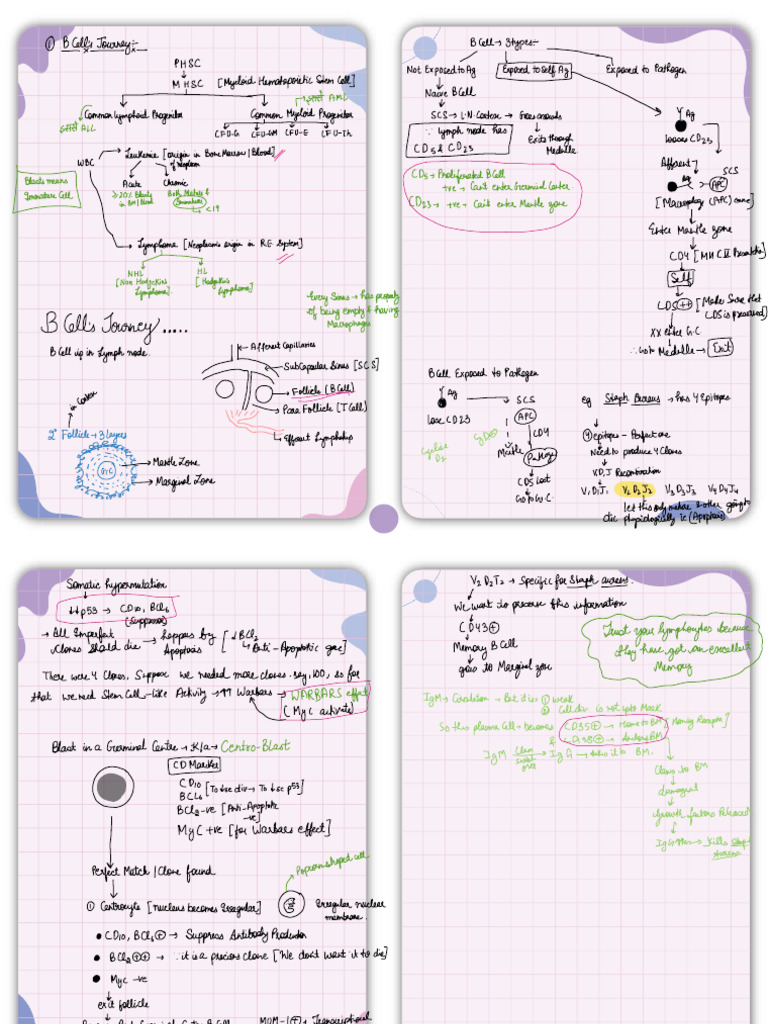 ① B Cell's Journey:-
PHSC
MHSC [Myeloid Hematopoietic Stem Cell]
AML
Common Lymphoid Progenitor
Common Myeloid Progenitor
ALL
CFU-G CFU-GM CFU-E CFU-Th
Leukemic [origin in Bone Marrow / Blood]
of neoplasm
WBC
Blasts means
Immature Cell
Acute
Chronic
≥20% Blasts
in BM/Blood
Both Mature &
Immature
<19
Lymphoma [Neoplasm origin in R.E. System]
NHL
[Non Hodgkin's
Lymphoma]
HL
[Hodgkin's
Lymphoma]
Every Sinus → has property
of being empty & having
Macrophages
B Cell's Journey .....
B Cell up in Lymph node.
Afferent Capillaries
SubCapsular Sinus [SCS]
Follicle [B Cell]
Para Follicle [T Cell]
Efferent Lymphatics
in Cortex
2° Follicle → 3 layers
G.C
Mantle Zone
Marginal Zone
B Cell → 3 types:-
Not Exposed to Ag
Exposed to Self Ag
Exposed to Pathogen
Naive B Cell
SCS → L.N. Cortex → Goes around
∵ lymph node has
CD5 & CD23
Exits through
Medulla
CD5 → Proliferated B Cell
+ve → Can't enter Germinal Center
CD23 → +ve → Can't enter Mantle zone
Ag
looses CD23
Afferent
SCS
Ag
APC
[Macrophage (APC) come]
Enter Mantle zone
CD4 [MHC II Presents]
Self
CD5 ++ [Make Sure that
CD5 is preserved]
XX enter G.C
∴ Go to Medulla → Exit
B Cell Exposed to Pathogen
Ag
lose CD23
SCS
APC
CD4
Mantle
CD5 lost
Go to G.C.
Cyclin
D2
eg Staph Aureus → has 4 Epitopes
④ epitopes - Perfect one
Need to produce 4 Clones
V,D,J Recombination
V1D1J1 V2D2J2 V3D3J3 V4D4J4
let this only mature & other going to
die physiologically ie (Apoptosis)
Somatic hypermutation
↓↓p53 → CD10, BCL6
(Suppress)
→ All Imperfect
Clones should die → happens by
Apoptosis
[↓BCL2
Anti-Apoptotic gene]
There were 4 Clones. Suppose we needed more clones say, 100, so for
that we need Stem Cell-Like Activity → ↑↑ Warbars → WARBARS effect
(Myc activate)
Blast in a Germinal Centre → K/a → Centro-Blast
CD Marker
CD10 [To ↓se div → To ↓se p53]
BCL6
BCL2 -ve [Anti-Apoptotic
-ve]
MyC +ve [for Warbars effect]
Perfect Match / Clone found
Popcorn shaped cell
① Centrocyte [nucleus becomes Irregular]
Irregular nuclear
membrane.
• CD10, BCL6 ⊕ → Suppress Antibody Production
• BCL2 ⊕⊕ → ∵ it is a precious clone [We don't want it to die]
• Myc -ve
exit follicle
V2 D2 J2 → Specific for Staph aureus.
We want to preserve this information
CD43 ⊕
Memory B Cell
goes to Marginal zone
Trust your lymphocytes because
they have got an excellent
Memory
IgM → Circulation → But div is ① weak
② Cell div is not upto Mark
So this plasma Cell → becomes
CD35 ⊕ → Home to BM
&
CD38 ⊕ → Anchors BM
[Homing Receptor]
IgM Class switch over → IgG → takes it to BM.
Clings to BM
Growth factors Released
→ Kills Staph